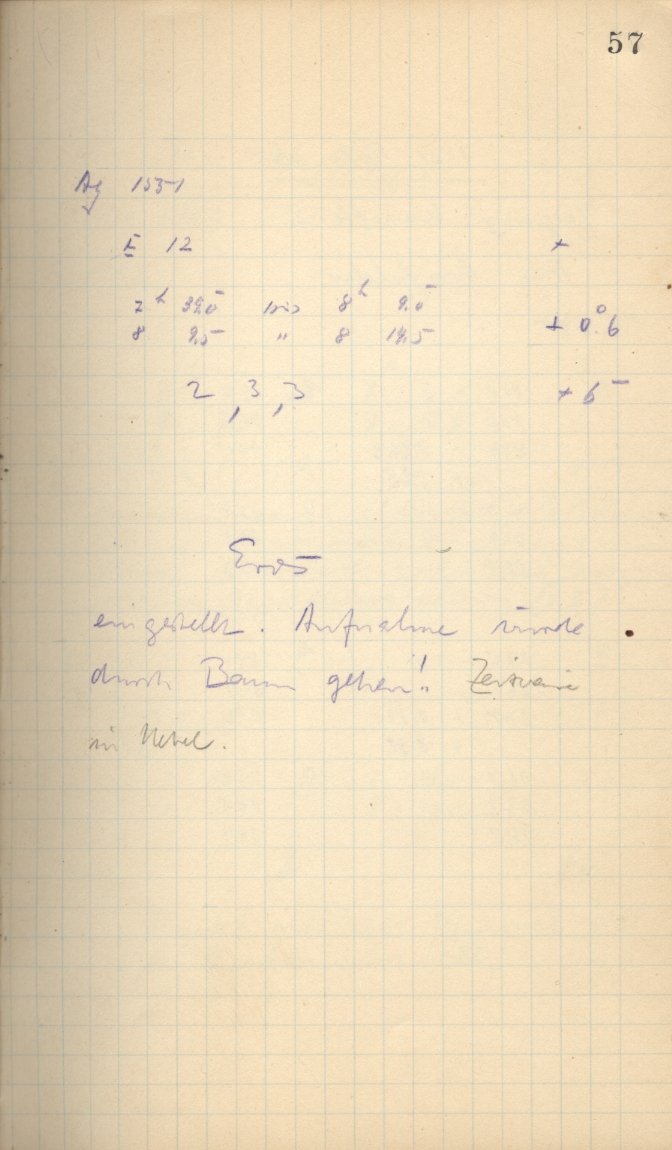 57
Ag 1551
E 12 +
7 h 39.5 bis 8 h 9.5
8 9.5 " 8 14.5 + 0°.6
2, 3, 3 + 6
Eros
eingestellt. Aufnahme würde
durch Baum gehen!! Zeitweise
im Nebel.